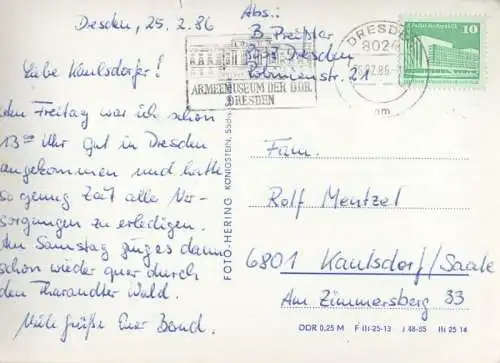 Dresden, 25.2.86
Liebe Kaulsdorfer!
den Freitag war ich schon
13 00 Uhr gut in Dresden
angekommen und hatte
so genug Zeit alle Ver-
sorgungen zu erledigen.
Den Samstag ging es dann
schon wieder quer durch
den Tharandter Wald.
Viele Grüße Euer Bernd.
Abs.:
B. Preißler
Dresden
21
ARMEEMUSEUM DER DDR
DRESDEN
DRESDEN
8024
.02.86
am
10
FOTO-HERING KÖNIGSTEIN,
Fam.
Rolf Mentzel
6801 Kaulsdorf/Saale
Am Zimmersberg 33
DDR 0,25 M F III-25-13 J 48-85 III 25 14